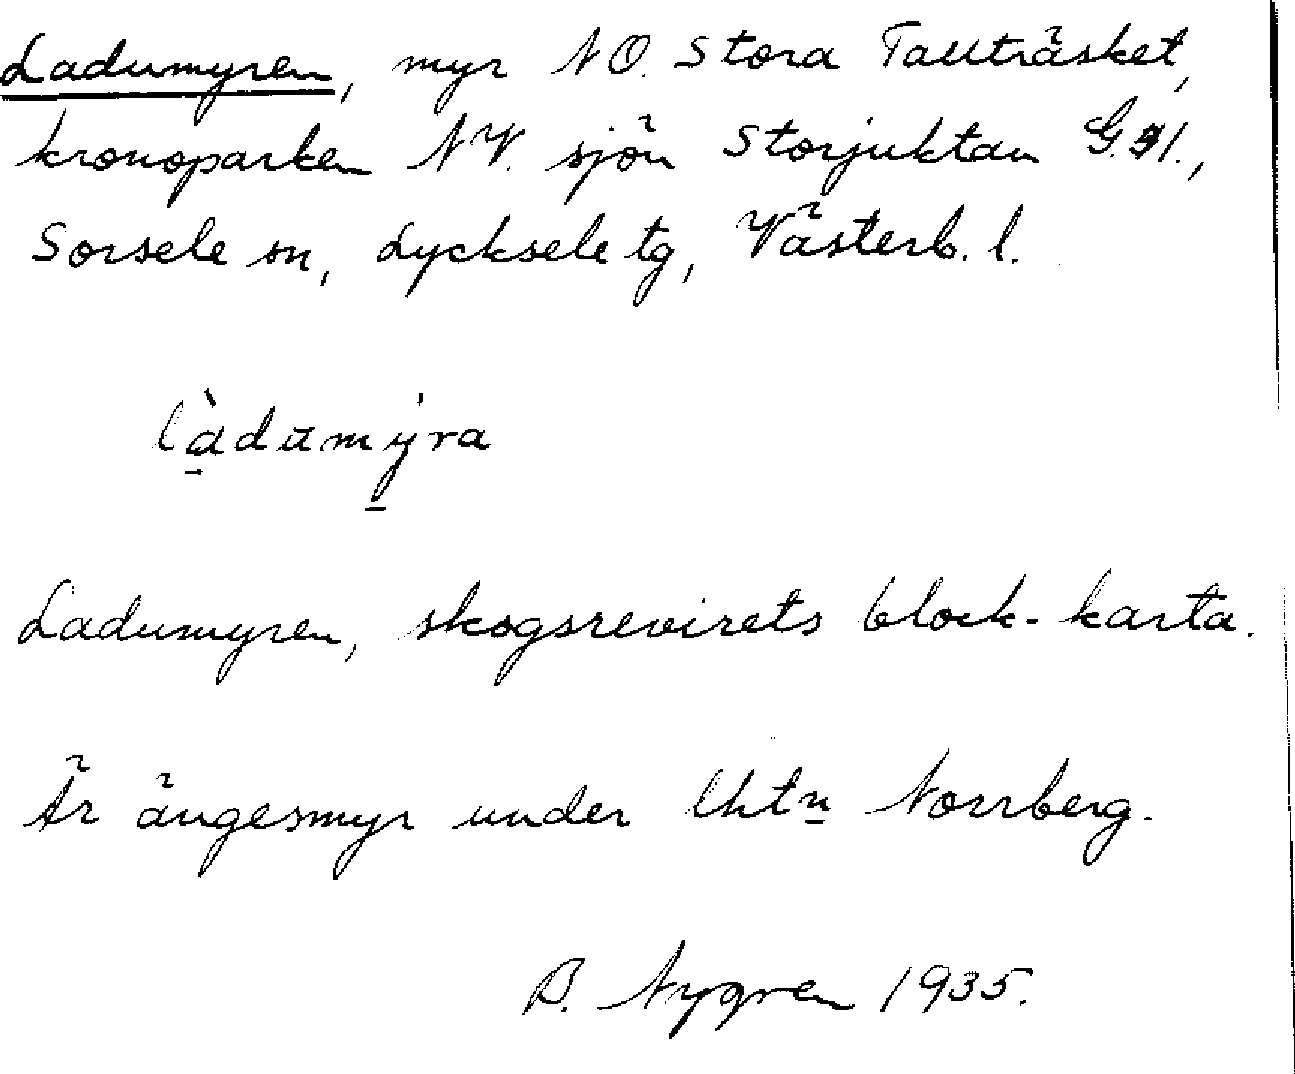 Ladumyren, myr NO. Stora Tallträsket,
kronoparken NV. sjön Storjuktan G.91.,
Sorsele sn, Lycksele tg, Västerb. l.
làdumy̍ra
Ladumyren, skogsrevirets block-karta.
Är ängesmyr under lhtn Norrberg.
B. Nygren 1935.